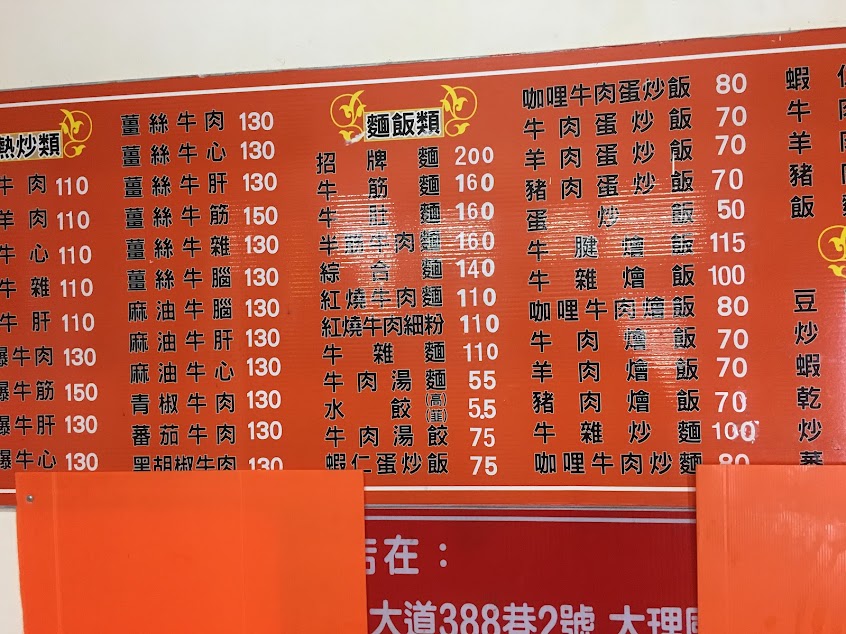 熱炒類
牛肉 110
羊肉 110
牛心 110
牛雜 110
牛肝 110
爆牛肉 130
爆牛筋 150
爆牛肝 130
爆牛心 130
薑絲牛肉 130
薑絲牛心 130
薑絲牛肝 130
薑絲牛筋 150
薑絲牛雜 130
薑絲牛腦 130
麻油牛腦 130
麻油牛肝 130
麻油牛心 130
青椒牛肉 130
蕃茄牛肉 130
黑胡椒牛肉 130
麵飯類
招牌麵 200
牛筋麵 160
牛肚麵 160
半筋牛肉麵 160
綜合麵 140
紅燒牛肉麵 110
紅燒牛肉細粉 110
牛雜麵 110
牛肉湯麵 55
水餃(高)(韭) 5.5
牛肉湯餃 75
蝦仁蛋炒飯 75
咖哩牛肉蛋炒飯 80
牛肉蛋炒飯 70
羊肉蛋炒飯 70
豬肉蛋炒飯 70
蛋炒飯 50
牛腱燴飯 115
牛雜燴飯 100
咖哩牛肉燴飯 80
牛肉燴飯 70
羊肉燴飯 70
豬肉燴飯 70
牛雜炒麵 100
咖哩牛肉炒麵 80
蝦
牛
羊
豬
飯
豆
炒
蝦
乾
炒
店在：
大道388巷2號 大理